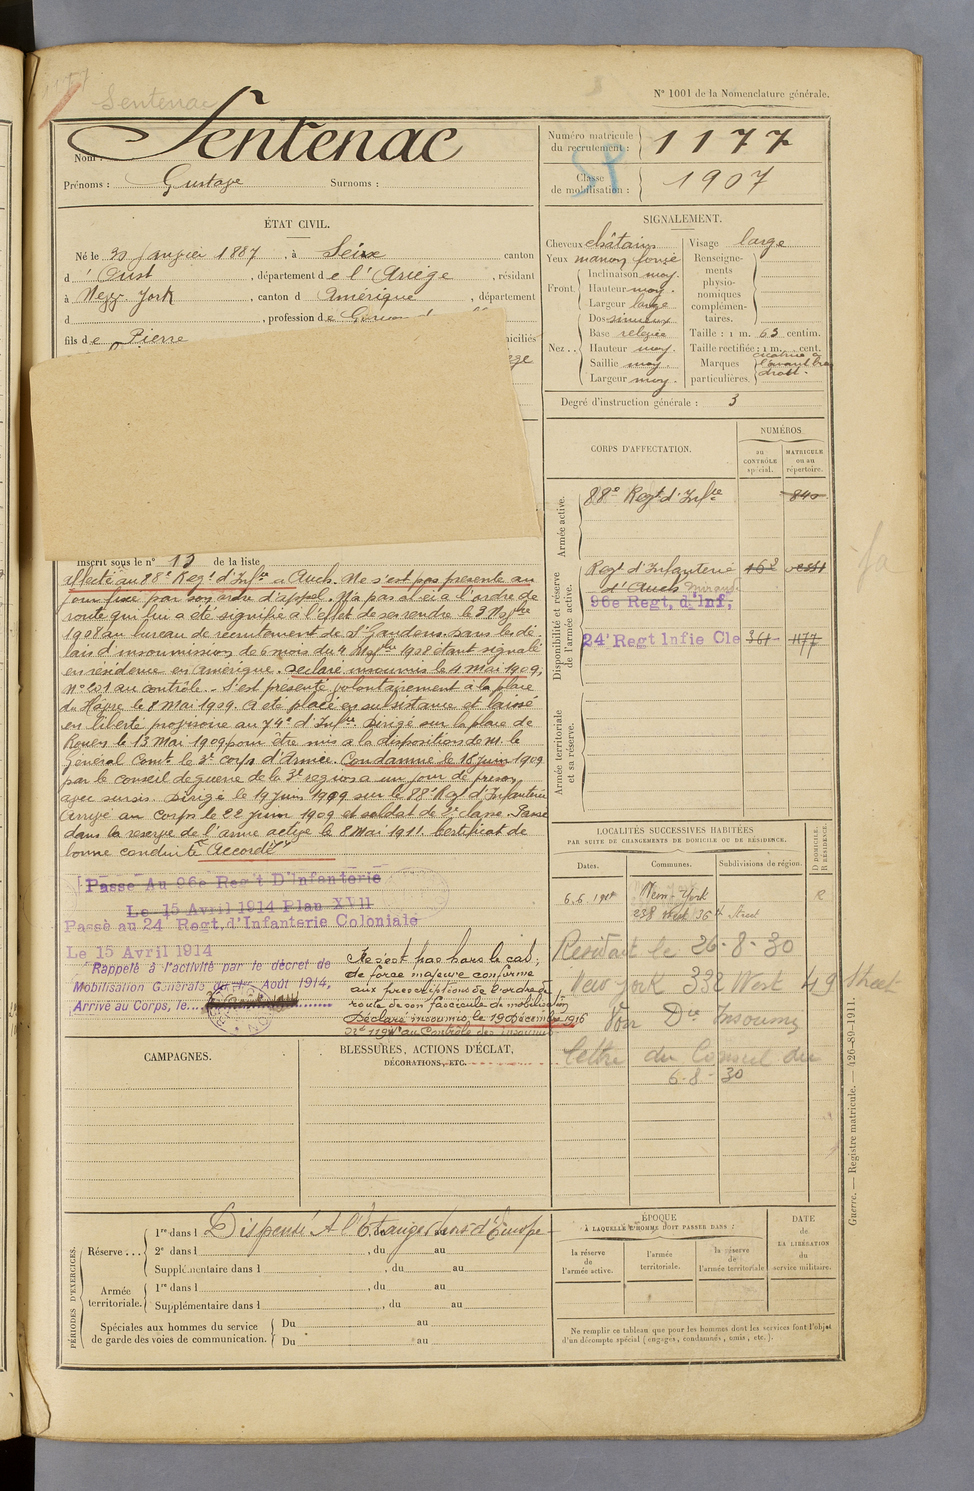 Sentenac
N° 1001 de la Nomenclature générale.
Nom : Sentenac
Prénoms : Gustave Surnoms :
Numéro matricule du recrutement : 1177
Classe de mobilisation : 1907
ÉTAT CIVIL.
Né le 30 Janvier 1887, à Seix canton
d'Oust, département de l'Ariège, résidant
à New York, canton d Amérique, département
d , profession de Garçon
fils de Pierre
SIGNALEMENT.
Cheveux châtains
Yeux marron foncé
Front. Inclinaison moy.
Hauteur moy.
Largeur large
Nez.. Dos sinueux
Base relevée
Hauteur moy.
Saillie moy.
Largeur moy.
Visage large
Renseignements physionomiques complémentaires.
Taille : 1 m. 63 centim.
Taille rectifiée : 1 m. cent.
Marques particulières. cicatrice à l'avant bras droit.
Degré d'instruction générale : 3
CORPS D'AFFECTATION.
NUMÉROS
au CONTRÔLE spécial.
MATRICULE ou au répertoire.
Armée active.
88e Regt d'Infie 840
Disponibilité et réserve de l'armée active.
Regt d'Infanterie
d'Auch Mirande
96e Regt, d'Inf,
24 Regt Infie Cle 361 1177
Armée territoriale et sa réserve.
Inscrit sous le n° 13 de la liste
affecté au 88e Regt d'Infie à Auch. Ne s'est pas présenté au
jour fixé par son ordre d'appel. N'a pas obéi à l'ordre de
route qui lui a été signifié à l'effet de se rendre le 3 Novbre
1908 au bureau de recrutement de St Gaudens dans les dé-
lais d'insoumission de 6 mois du 4 Novbre 1908 étant signalé
en résidence en Amérique. Déclaré insoumis le 4 mai 1909,
N° 201 au contrôle. - S'est présenté volontairement à la place
du Hâvre le 8 Mai 1909. A été placé en subsistance et laissé
en liberté provisoire au 74e d'Infie. Dirigé sur la place de
Rouen le 13 Mai 1909 pour être mis à la disposition de M. le
Général Comt le 3e corps d'Armée. Condamné le 16 juin 1909
par le conseil de guerre de la 3e région à un jour de prison
avec sursis. Dirigé le 19 juin 1909 sur le 88e Regt d'Infanterie
Arrivé au corps le 22 juin 1909 et soldat de 2e classe. Passé
dans la réserve de l'armée active le 8 Mai 1911. Certificat de
bonne conduite "Accordé"
Passé Au 96e Reg't D'Infanterie
Le 15 Avril 1914 Plan XVII
Passé au 24 Regt, d'Infanterie Coloniale
Le 15 Avril 1914
Rappelé à l'activité par le décret de
Mobilisation Générale du 1er Août 1914,
Arrivé au Corps, le
Ne s'est pas hors le cas,
de force majeure conformé
aux prescriptions de l'ordre de
route de son fascicule de mobilisation
Déclaré insoumis le 19 Décembre 1916
N° 1194 au Contrôle des insoumis
LOCALITÉS SUCCESSIVES HABITÉES
PAR SUITE DE CHANGEMENTS DE DOMICILE OU DE RÉSIDENCE.
D DOMICILE. R RÉSIDENCE.
Dates. Communes. Subdivisions de région.
New-York R
238 West 36th Street
Résidait le 26-8-30
New York 332 West 49 Street
Voir Dr Insoumis
lettre du Consul du
6-8-30
CAMPAGNES.
BLESSURES, ACTIONS D'ÉCLAT,
DÉCORATIONS, ETC.
PÉRIODES D'EXERCICES.
Réserve : ... 1re dans l Dispensé A l'Etranger hors d'Europe
2e dans l , du au
Supplémentaire dans l , du au
Armée territoriale. 1re dans l , du au
Supplémentaire dans l , du au
Spéciales aux hommes du service de garde des voies de communication. Du au
Du au
ÉPOQUE
À LAQUELLE L'HOMME DOIT PASSER DANS :
la réserve de l'armée active.
l'armée territoriale.
la réserve de l'armée territoriale
DATE DE LA LIBÉRATION du service militaire.
Ne remplir ce tableau que pour les hommes dont les services font l'objet
d'un décompte spécial (engagés, condamnés, omis, etc.).
Guerre. — Registre matricule. — 426-89-1911.